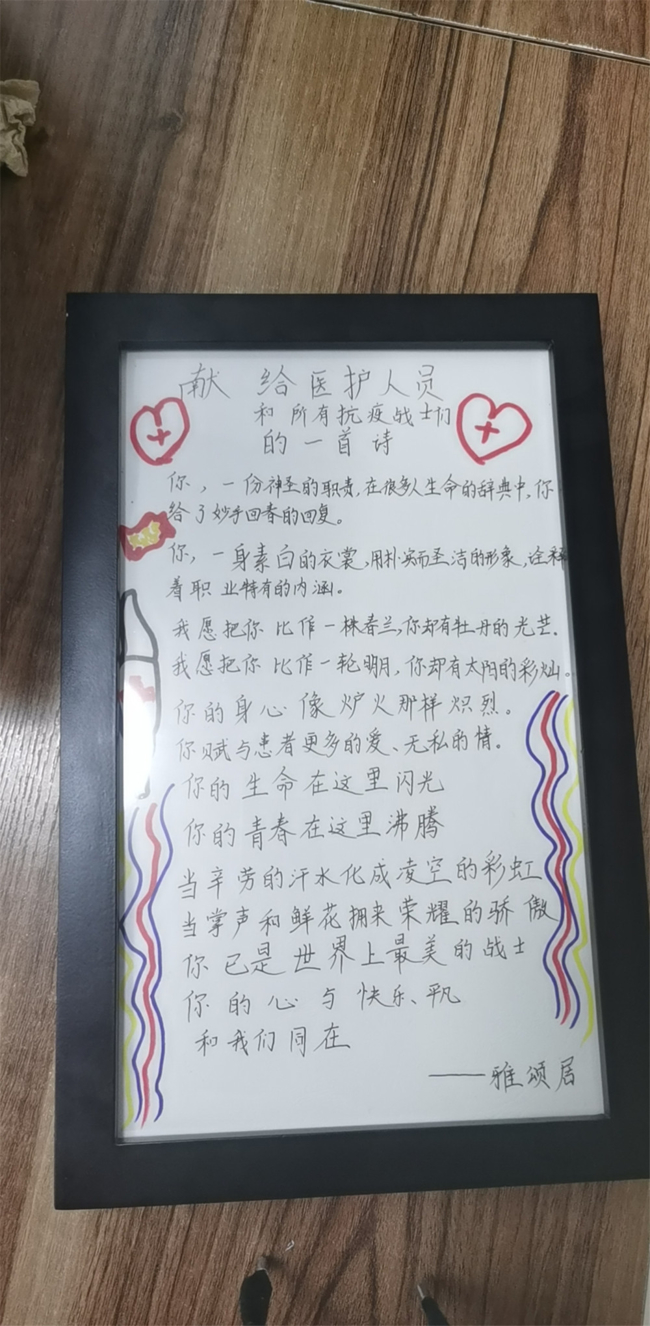 献给医护人员
和所有抗疫战士们
的一首诗
你，一份神圣的职责，在很多人生命的辞典中，你
给了妙手回春的回复。
你，一身素白的衣裳，用朴实而圣洁的形象，诠释
着职业特有的内涵。
我愿把你比作一株春兰，你却有牡丹的光芒.
我愿把你比作一轮明月，你却有太阳的彩灿。
你的身心像炉火那样炽烈。
你赋与患者更多的爱、无私的情。
你的生命在这里闪光
你的青春在这里沸腾
当辛劳的汗水化成凌空的彩虹
当掌声和鲜花拥来荣耀的骄傲
你已是世界上最美的战士
你的心与快乐、平凡
和我们同在
——雅颂居